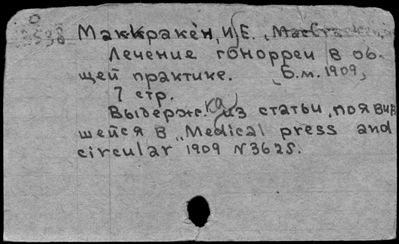 Маккракен, И.Е.
Лечение гонорреи в об-
щей практике. Б.м. 1909,
7 стр.
Выдержка из статьи, появив
шейся в „Medical press and
circular 1909 N3625.